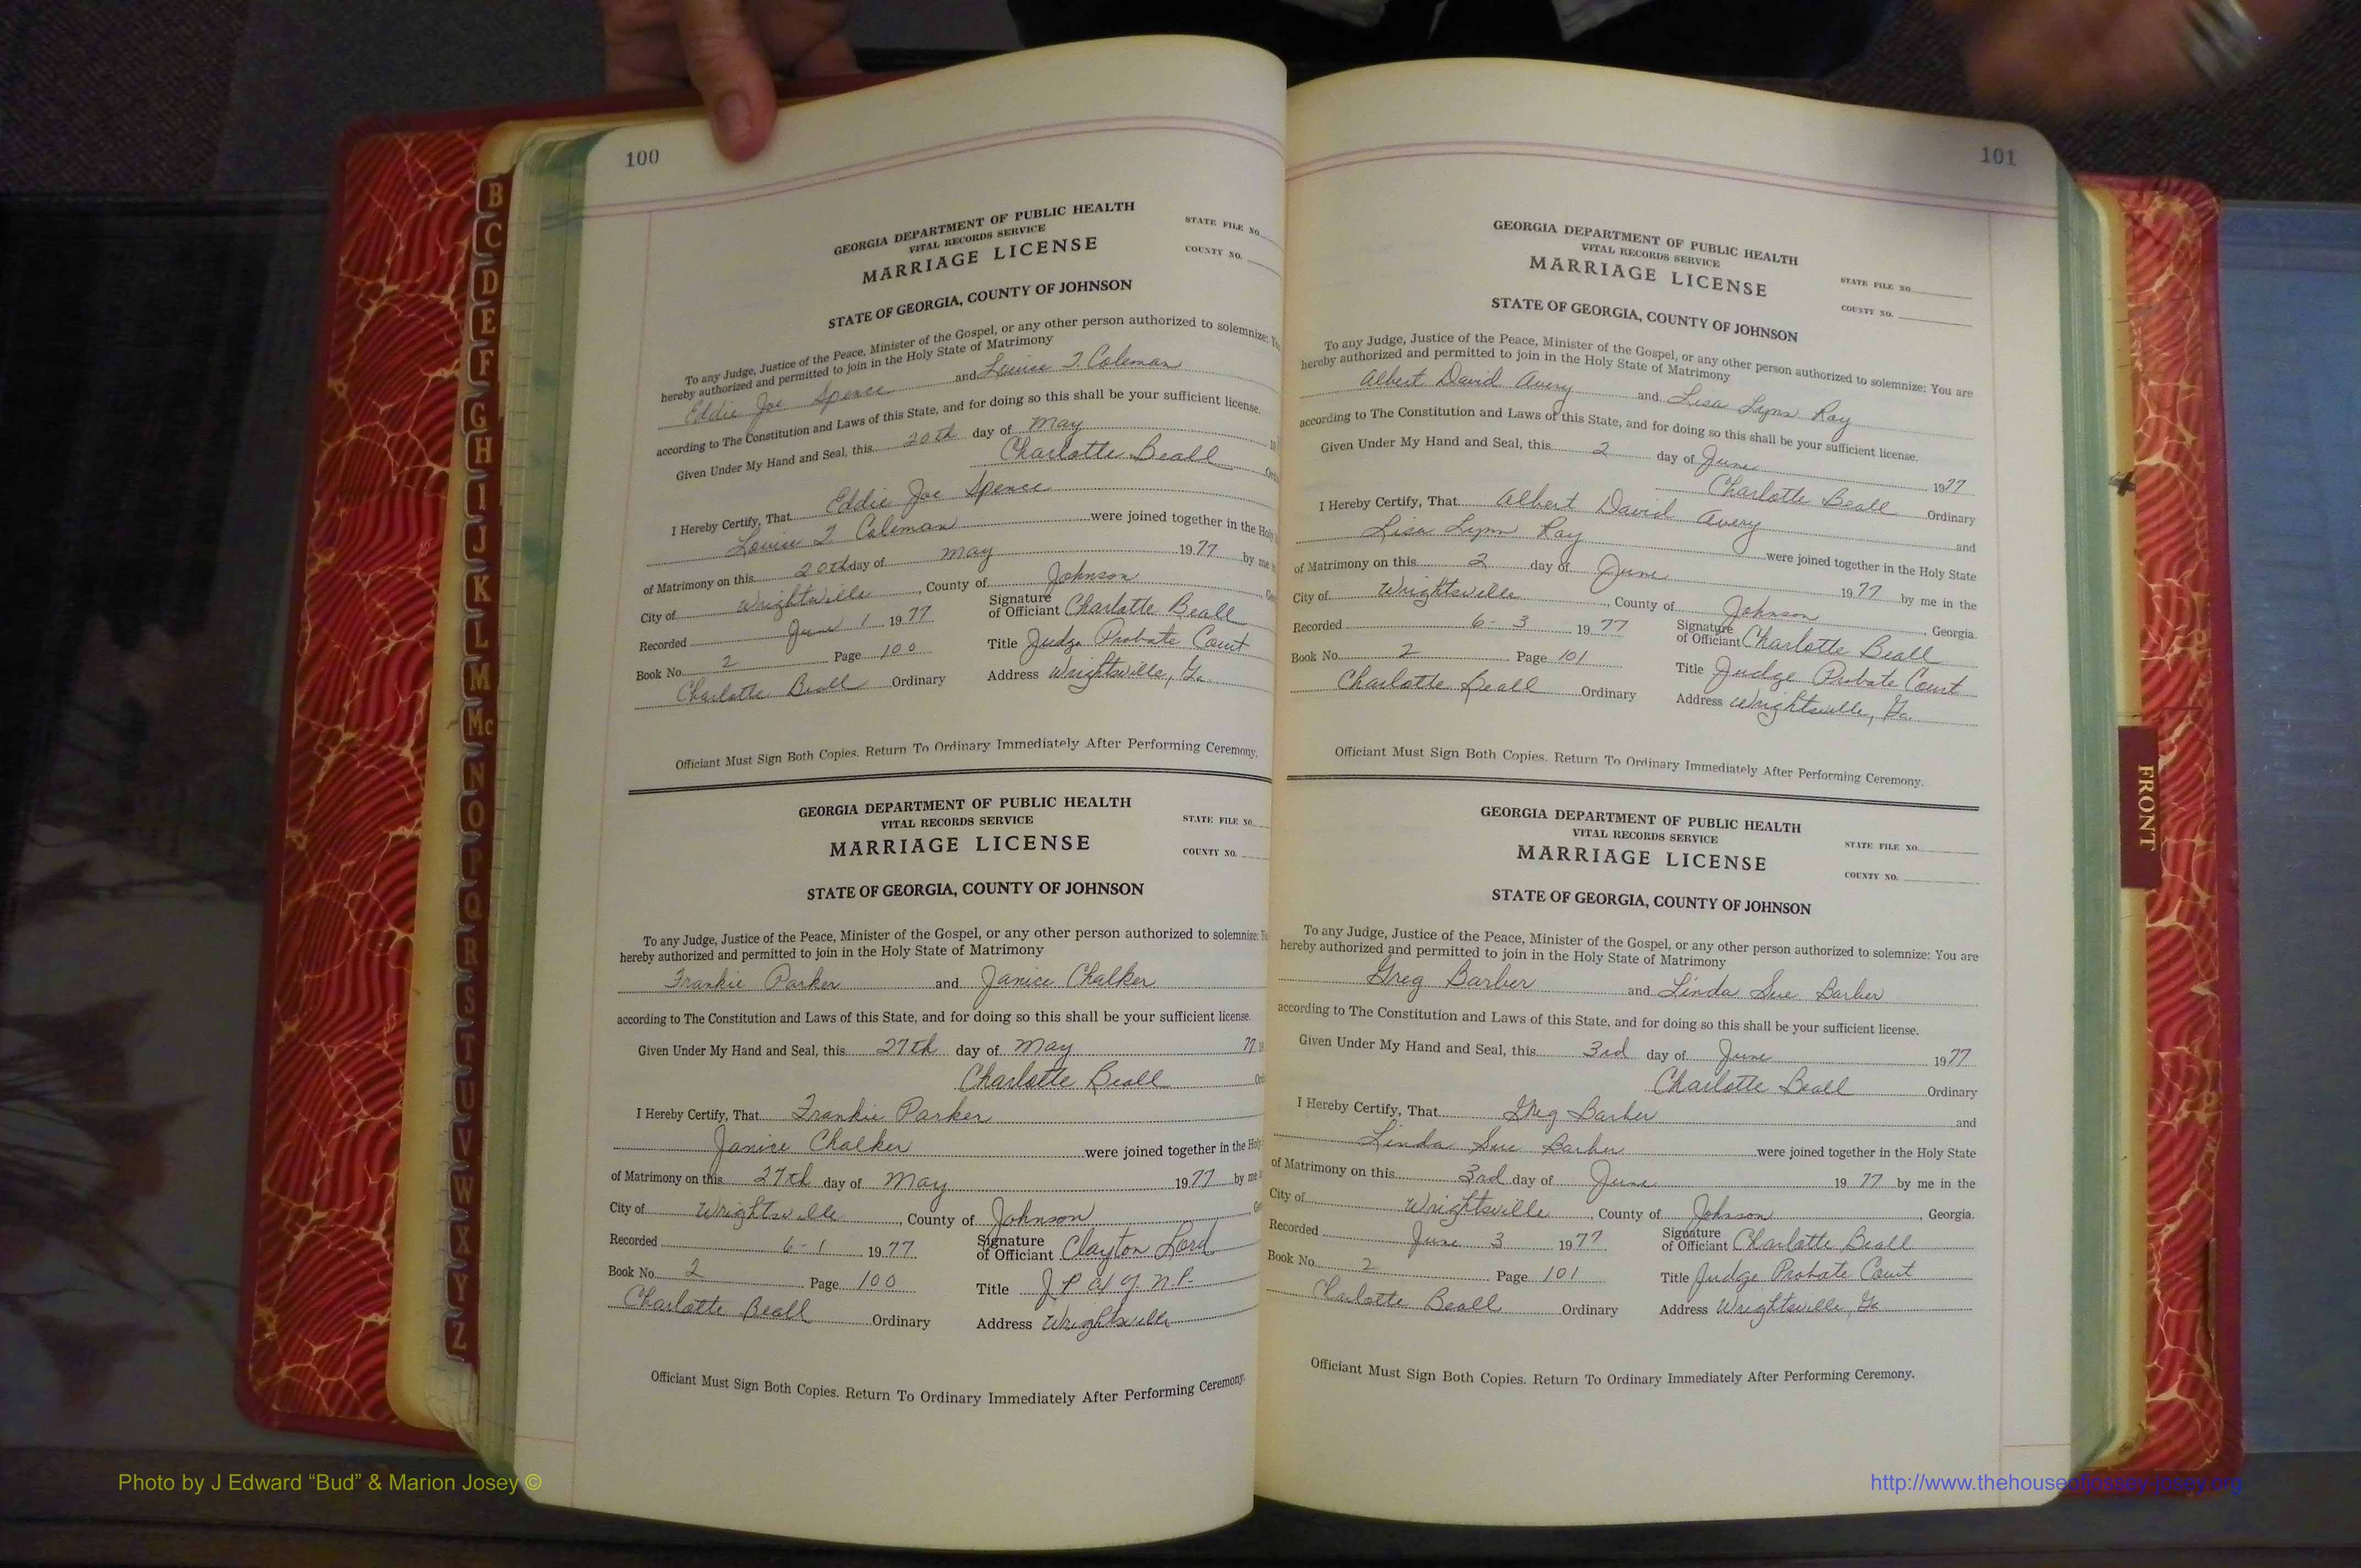 100
GEORGIA DEPARTMENT OF PUBLIC HEALTH
VITAL RECORDS SERVICE
MARRIAGE LICENSE
STATE FILE NO.
COUNTY NO.
STATE OF GEORGIA, COUNTY OF JOHNSON
To any Judge, Justice of the Peace, Minister of the Gospel, or any other person authorized to solemnize:
hereby authorized and permitted to join in the Holy State of Matrimony
Eddie Joe Spence and Louise T. Coleman
according to The Constitution and Laws of this State, and for doing so this shall be your sufficient license.
Given Under My Hand and Seal, this 20th day of May
Charlotte Beall
I Hereby Certify, That Eddie Joe Spence
Louise T Coleman were joined together in the Holy
of Matrimony on this 20th day of May 1977 by me
City of Wrightsville, County of Johnson
Recorded June 1 1977 Signature of Officiant Charlotte Beall
Book No. 2 Page 100 Title Judge Probate Court
Charlotte Beall Ordinary Address Wrightsville, Ga.
Officiant Must Sign Both Copies. Return To Ordinary Immediately After Performing Ceremony.
GEORGIA DEPARTMENT OF PUBLIC HEALTH
VITAL RECORDS SERVICE
MARRIAGE LICENSE
STATE FILE NO.
COUNTY NO.
STATE OF GEORGIA, COUNTY OF JOHNSON
To any Judge, Justice of the Peace, Minister of the Gospel, or any other person authorized to solemnize:
hereby authorized and permitted to join in the Holy State of Matrimony
Frankie Parker and Janice Chalker
according to The Constitution and Laws of this State, and for doing so this shall be your sufficient license.
Given Under My Hand and Seal, this 27th day of May 77
Charlotte Beall
I Hereby Certify, That Frankie Parker
Janice Chalker were joined together in the Holy
of Matrimony on this 27th day of May 1977 by me
City of Wrightsville, County of Johnson
Recorded 6-1 1977 Signature of Officiant Clayton Lord
Book No. 2 Page 100 Title J P
Charlotte Beall Ordinary Address Wrightsville
Officiant Must Sign Both Copies. Return To Ordinary Immediately After Performing Ceremony.
101
GEORGIA DEPARTMENT OF PUBLIC HEALTH
VITAL RECORDS SERVICE
MARRIAGE LICENSE
STATE FILE NO.
COUNTY NO.
STATE OF GEORGIA, COUNTY OF JOHNSON
To any Judge, Justice of the Peace, Minister of the Gospel, or any other person authorized to solemnize: You are
hereby authorized and permitted to join in the Holy State of Matrimony
Albert David Avery and Lisa Lynn Ray
according to The Constitution and Laws of this State, and for doing so this shall be your sufficient license.
Given Under My Hand and Seal, this 2 day of June 1977
Charlotte Beall Ordinary
I Hereby Certify, That Albert David Avery and
Lisa Lynn Ray were joined together in the Holy State
of Matrimony on this 2 day of June 1977 by me in the
City of Wrightsville, County of Johnson, Georgia.
Recorded 6-3 1977 Signature of Officiant Charlotte Beall
Book No. 2 Page 101 Title Judge Probate Court
Charlotte Beall Ordinary Address Wrightsville, Ga.
Officiant Must Sign Both Copies. Return To Ordinary Immediately After Performing Ceremony.
GEORGIA DEPARTMENT OF PUBLIC HEALTH
VITAL RECORDS SERVICE
MARRIAGE LICENSE
STATE FILE NO.
COUNTY NO.
STATE OF GEORGIA, COUNTY OF JOHNSON
To any Judge, Justice of the Peace, Minister of the Gospel, or any other person authorized to solemnize: You are
hereby authorized and permitted to join in the Holy State of Matrimony
Greg Barber and Linda Sue Barber
according to The Constitution and Laws of this State, and for doing so this shall be your sufficient license.
Given Under My Hand and Seal, this 3rd day of June 1977
Charlotte Beall Ordinary
I Hereby Certify, That Greg Barber and
Linda Sue Barber were joined together in the Holy State
of Matrimony on this 3rd day of June 1977 by me in the
City of Wrightsville, County of Johnson, Georgia.
Recorded June 3 1977 Signature of Officiant Charlotte Beall
Book No. 2 Page 101 Title Judge Probate Court
Charlotte Beall Ordinary Address Wrightsville, Ga
Officiant Must Sign Both Copies. Return To Ordinary Immediately After Performing Ceremony.
B
C
D
E
F
G
H
I
J
K
L
M
Mc
N
O
P
Q
R
S
T
U
V
W
X
Y
Z
FRONT
Photo by J Edward “Bud” & Marion Josey ©
http://www.thehouseofjossey-josey.org